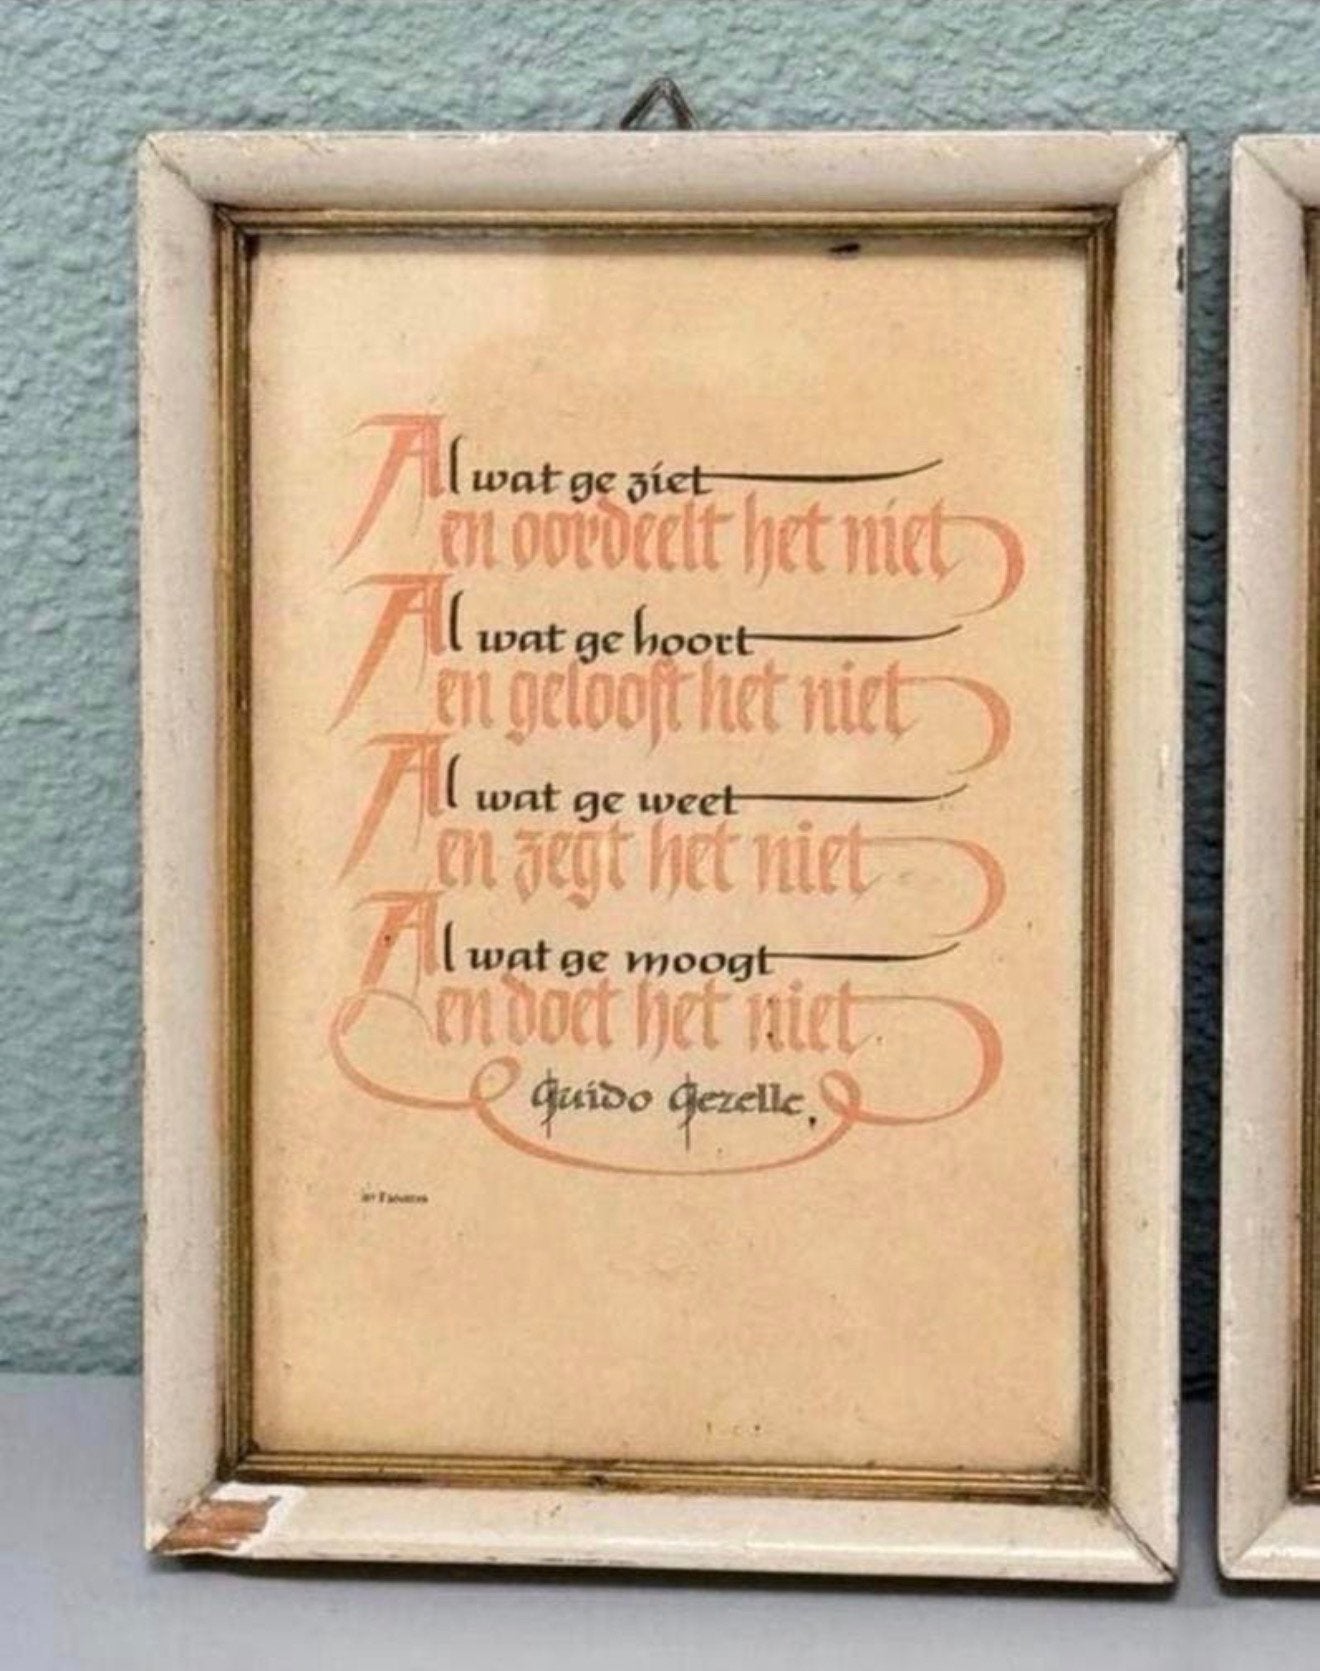 Al wat ge ziet
en oordeelt het niet
Al wat ge hoort
en gelooft het niet
Al wat ge weet
en zegt het niet
Al wat ge moogt
en doet het niet
Guido Gezelle.